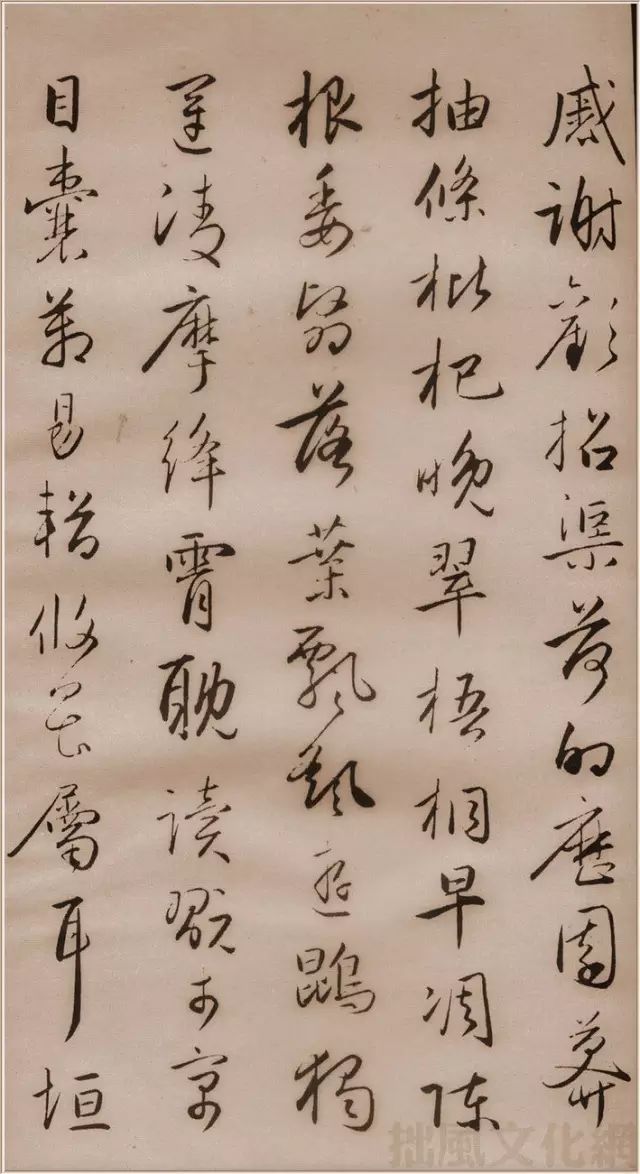 慼謝歡招渠荷的歷園莽
抽條枇杷晚翠梧桐早凋陳
根委翳落葉飄颻遊鵾獨
運凌摩絳霄耽讀翫市寓
目囊箱易輶攸畏屬耳垣
拙風文化網